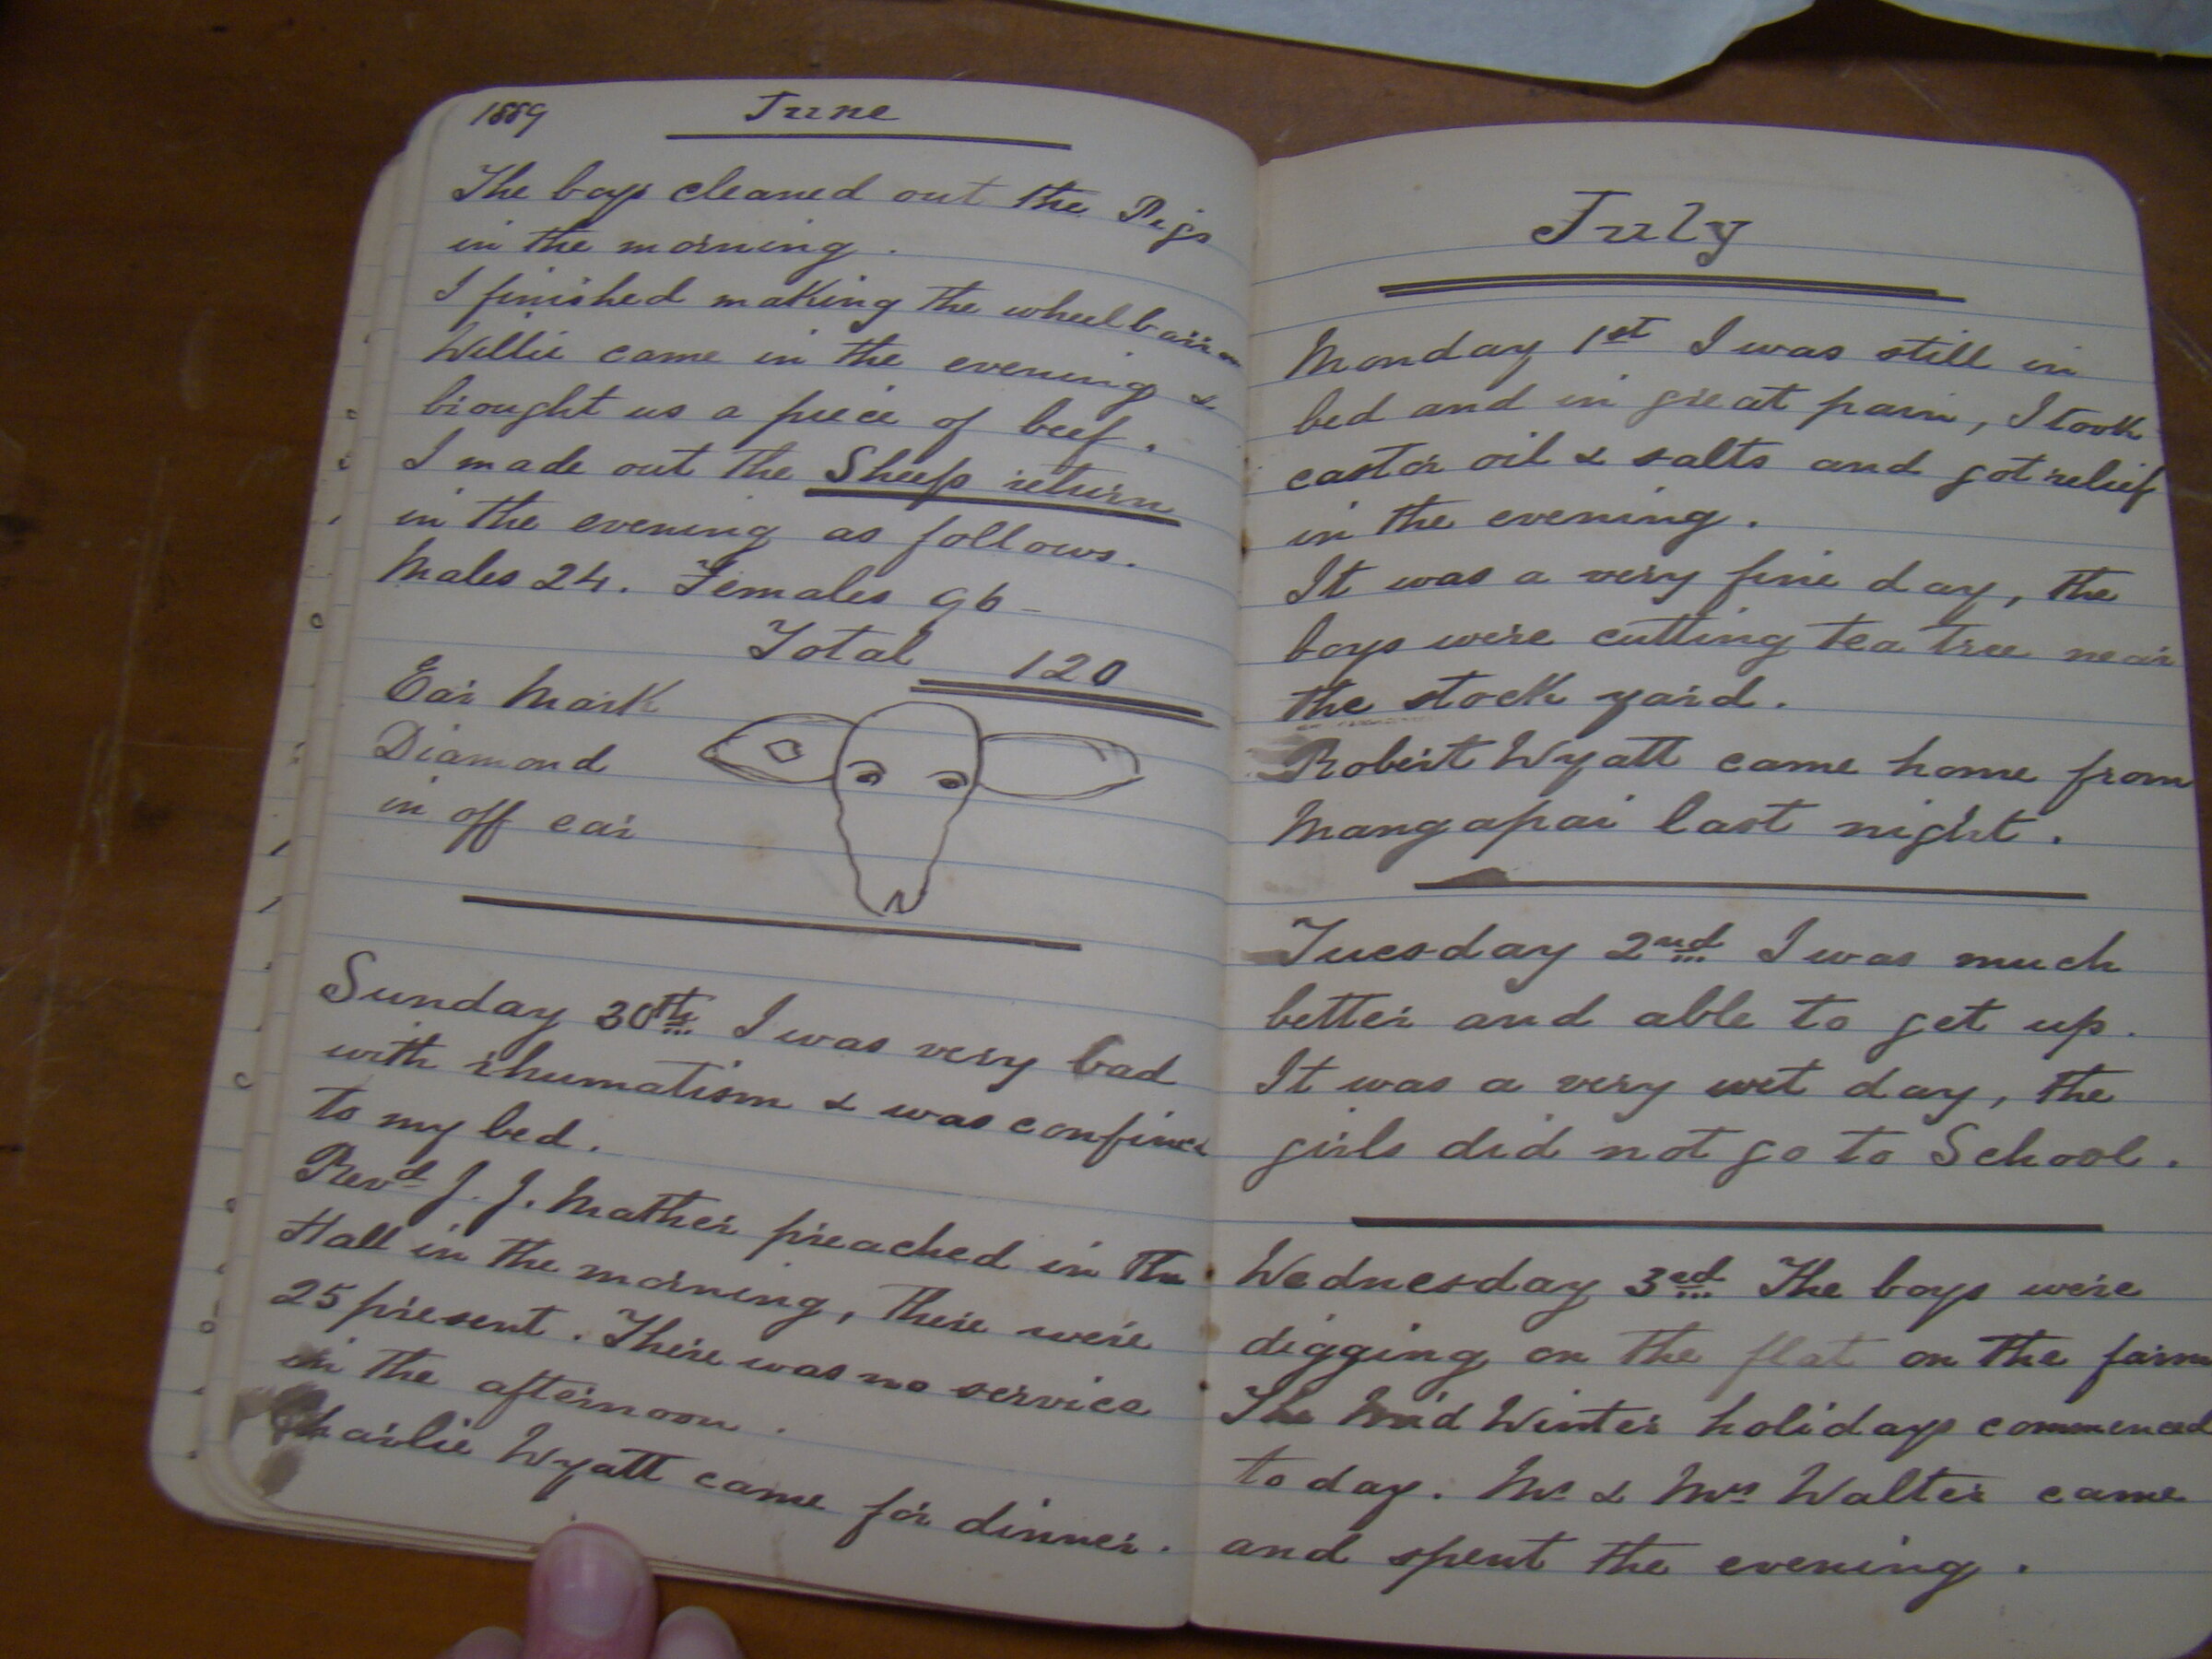 1889 June
The boys cleaned out the Pigs
in the morning.
I finished making the wheelbarrow
Willie came in the evening &
brought us a piece of beef.
I made out the Sheep return
in the evening as follows.
Males 24. Females 96 -
Total 120
Ear Mark
Diamond
in off ear
Sunday 30th I was very bad
with rhumatism & was confined
to my bed.
Revd J. J. Mather preached in the
Hall in the morning, there were
25 present. There was no service
in the afternoon.
Charlie Wyatt came for dinner.
July
Monday 1st I was still in
bed and in great pain, I took
castor oil & salts and got relief
in the evening.
It was a very fine day, the
boys were cutting tea tree near
the stock yard.
Robert Wyatt came home from
Mangapai last night.
Tuesday 2nd I was much
better and able to get up.
It was a very wet day, the
girls did not go to School.
Wednesday 3rd The boys were
digging on the flat on the farm
The Mid Winter holidays commenced
to day. Mr & Mrs Walter came
and spent the evening.